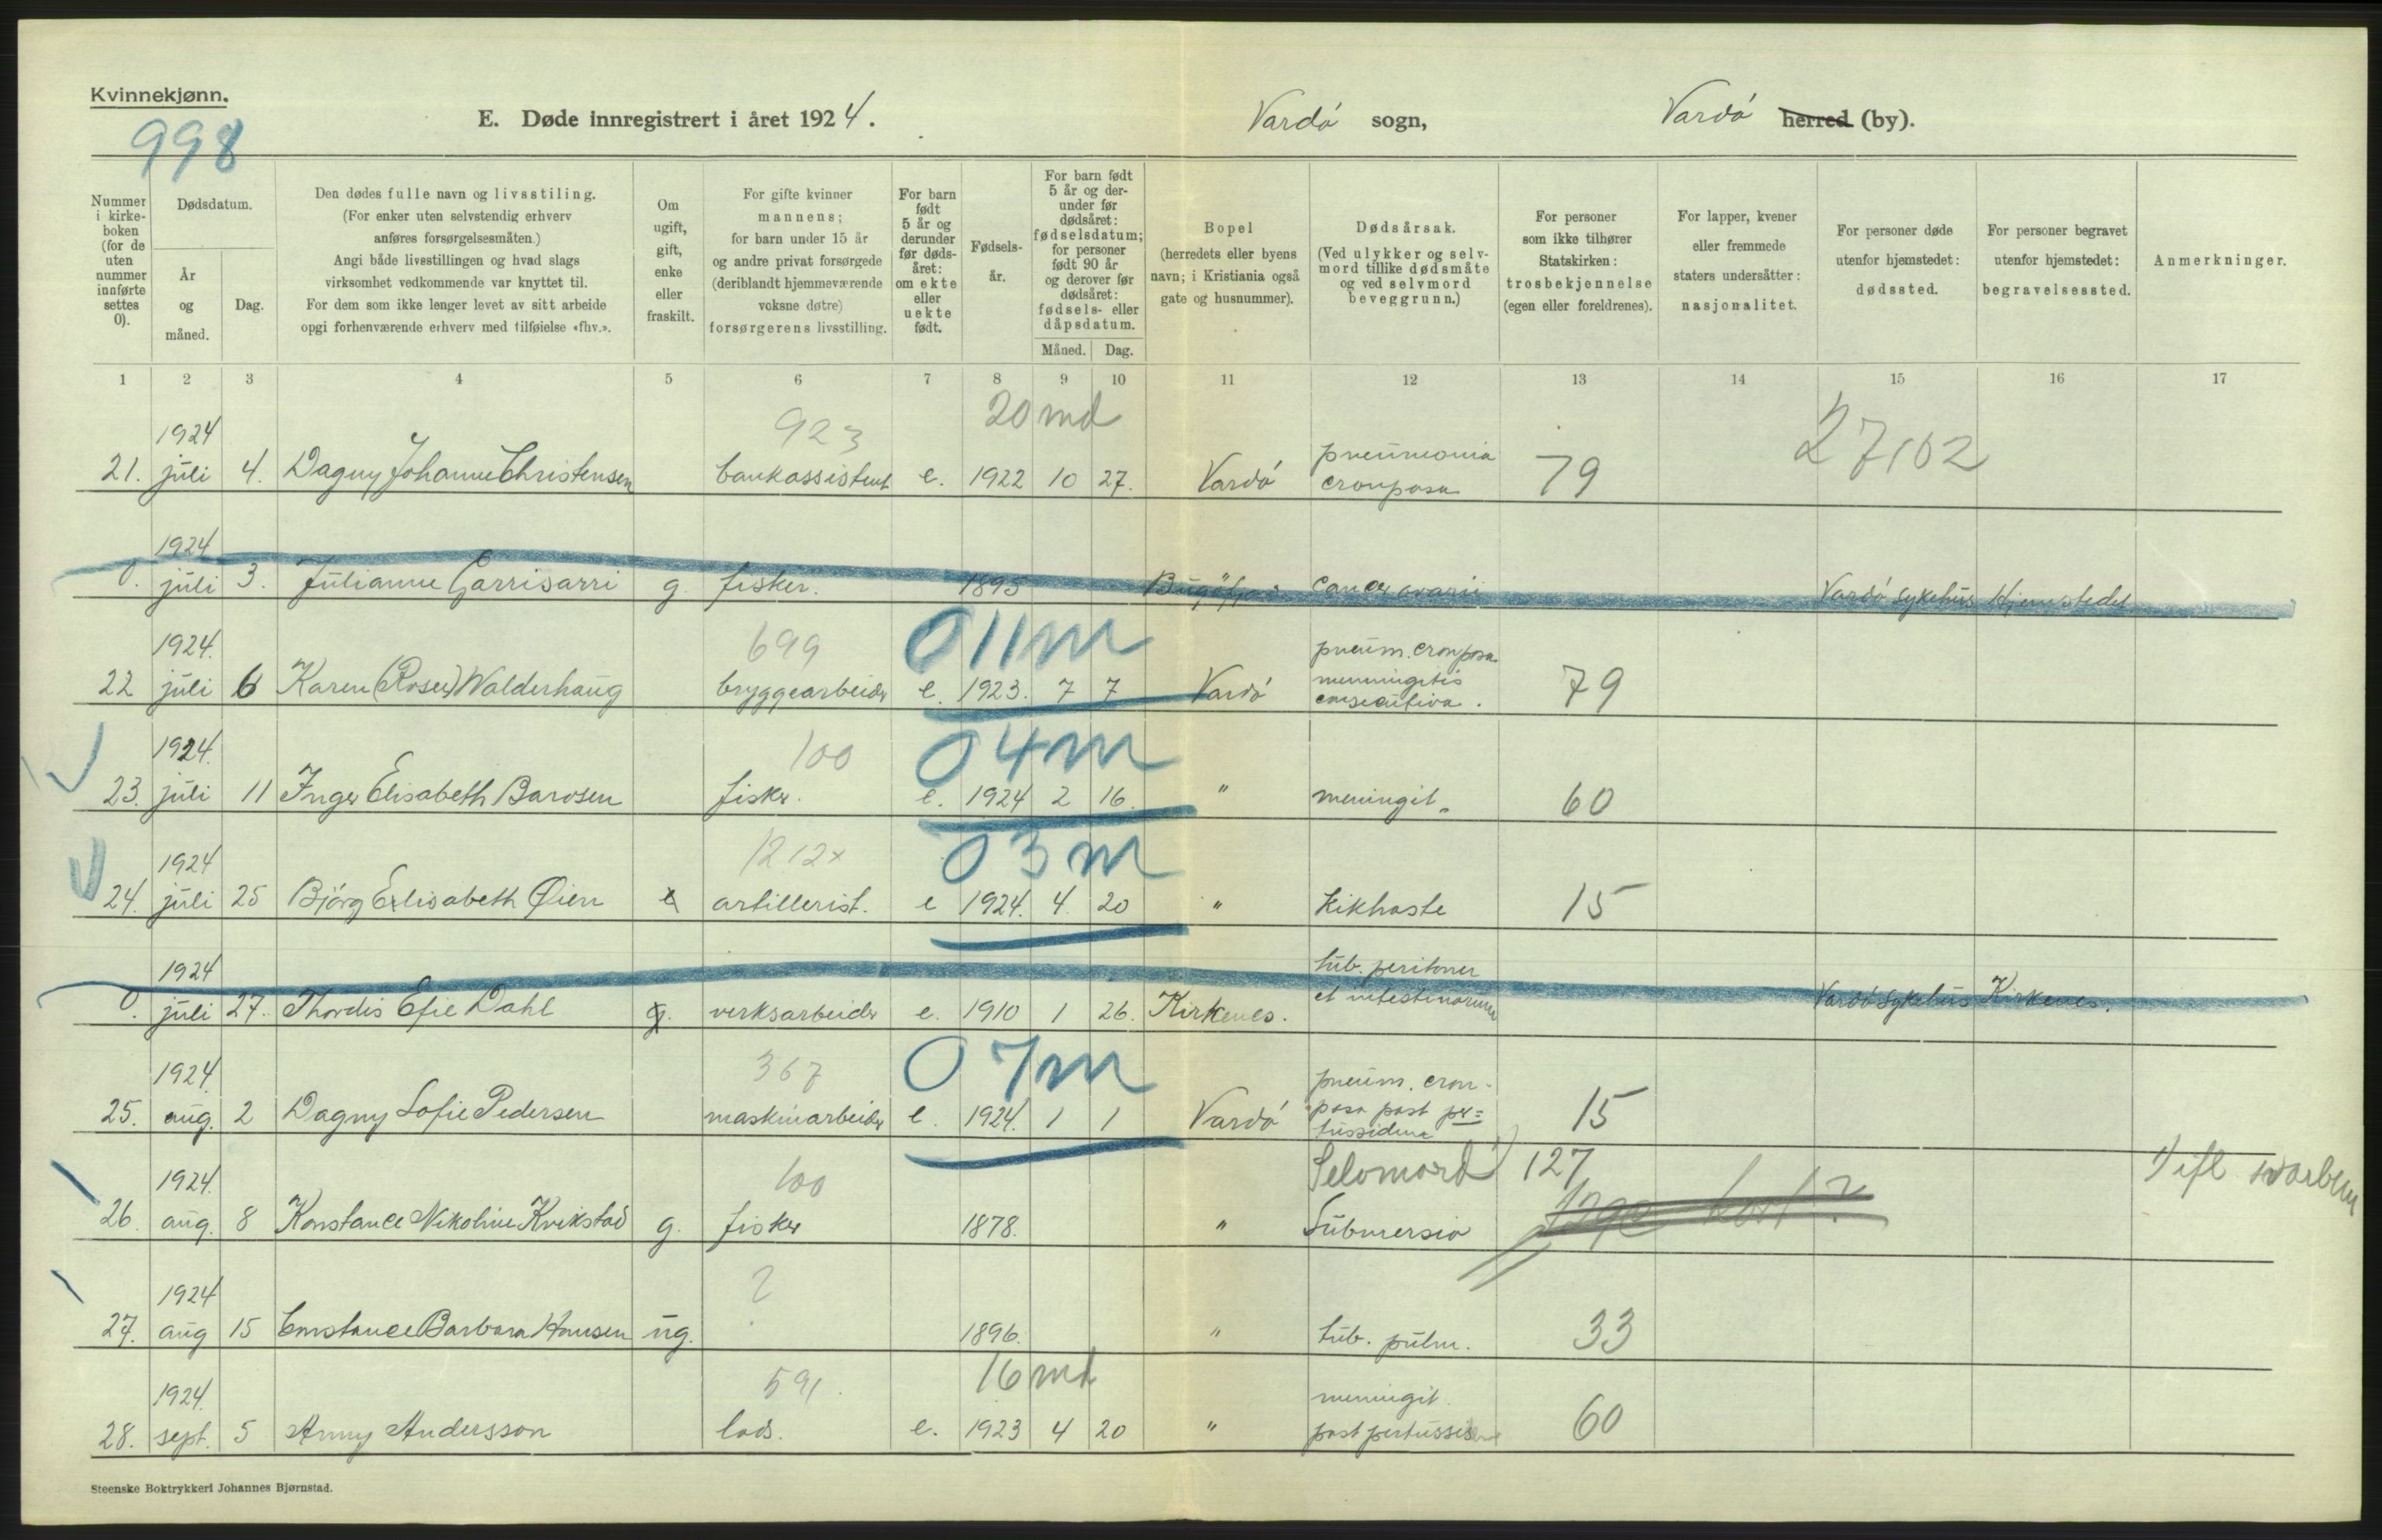 Kvinnekjønn.
998
E. Døde innregistrert i året 1924.
Vardö sogn,
Vardö herred (by).
Nummer i kirke-boken (for de uten nummer innførte settes 0).
Dødsdatum.
År og måned.
Dag.
Den dødes fulle navn og livsstiling.
(For enker uten selvstendig erhverv
anføres forsørgelsesmåten.)
Angi både livsstillingen og hvad slags
virksomhet vedkommende var knyttet til.
For dem som ikke lenger levet av sitt arbeide
opgi forhenværende erhverv med tilføielse «fhv.».
Om ugift, gift, enke eller fraskilt.
For gifte kvinner
mannens;
for barn under 15 år
og andre privat forsørgede
(deriblandt hjemmeværende
voksne døtre)
forsørgerens livsstilling.
For barn født 5 år og derunder før døds-året: om ekte eller uekte født.
Fødsels-år.
For barn født 5 år og der-under før dødsåret: fødselsdatum; for personer født 90 år og derover før dødsåret: fødsels- eller dåpsdatum.
Måned. Dag.
Bopel
(herredets eller byens
navn; i Kristiania også
gate og husnummer).
Dødsårsak.
(Ved ulykker og selv-
mord tillike dødsmåte
og ved selvmord
beveggrunn.)
For personer
som ikke tilhører
Statskirken:
trosbekjennelse
(egen eller foreldrenes).
For lapper, kvener
eller fremmede
staters undersåtter:
nasjonalitet.
For personer døde
utenfor hjemstedet:
dødssted.
For personer begravet
utenfor hjemstedet:
begravelsessted.
Anmerkninger.
1 2 3 4 5 6 7 8 9 10 11 12 13 14 15 16 17
1924 923 20 md pneumonia 27102
21. juli 4. Dagny Johanne Christensen bankassistent e. 1922 10 27. Vardö crouposa 79
1924
0. juli 3. Julianne Garrisarri g. fisker. 1895 cancer ovarii Vardö sykehus Hjemstedet
1924. 699 0 11 m pneum. crouposa
22 juli 6 Karen (Rosen) Walderhaug bryggearbeider e. 1923. 7 7 Vardö menningitis 79
consecutiva.
1924. 100 0 4 m
23. juli 11 Inger Elisabeth Barosen fisker. e. 1924 2 16. " meningit. 60
1924 1212x 0 3 m
24. juli 25 Björg Elisabeth Øien artillerist. e 1924. 4. 20 " Kikhoste 15
1924 tub. peritoner
0. juli 27. Thordis Efie Dahl g. verksarbeider e. 1910 1 26. Kirkenes. et intestinorum Vardö sykehus Kirkenes.
1924. 367 0 7 m pneum. crou-
25. aug. 2 Dagny Sofie Pedersen maskinarbeider e. 1924. 1 1 Vardö posa post per= 15
tussidem
1924. 100 Selvmord 1) 127 1) ifl
26. aug. 8 Konstance Nikoline Kvikstad g. fisker 1878. " Submersio
1924 2
27. aug 15 Constance Barbara Hansen ug. 1896. " tub. pulm. 33
1924. 591. 16 md meningit.
28. sept. 5 Anny Andersson lods. e. 1923 4 20 " post pertussis 60
Steenske Boktrykkeri Johannes Bjørnstad.